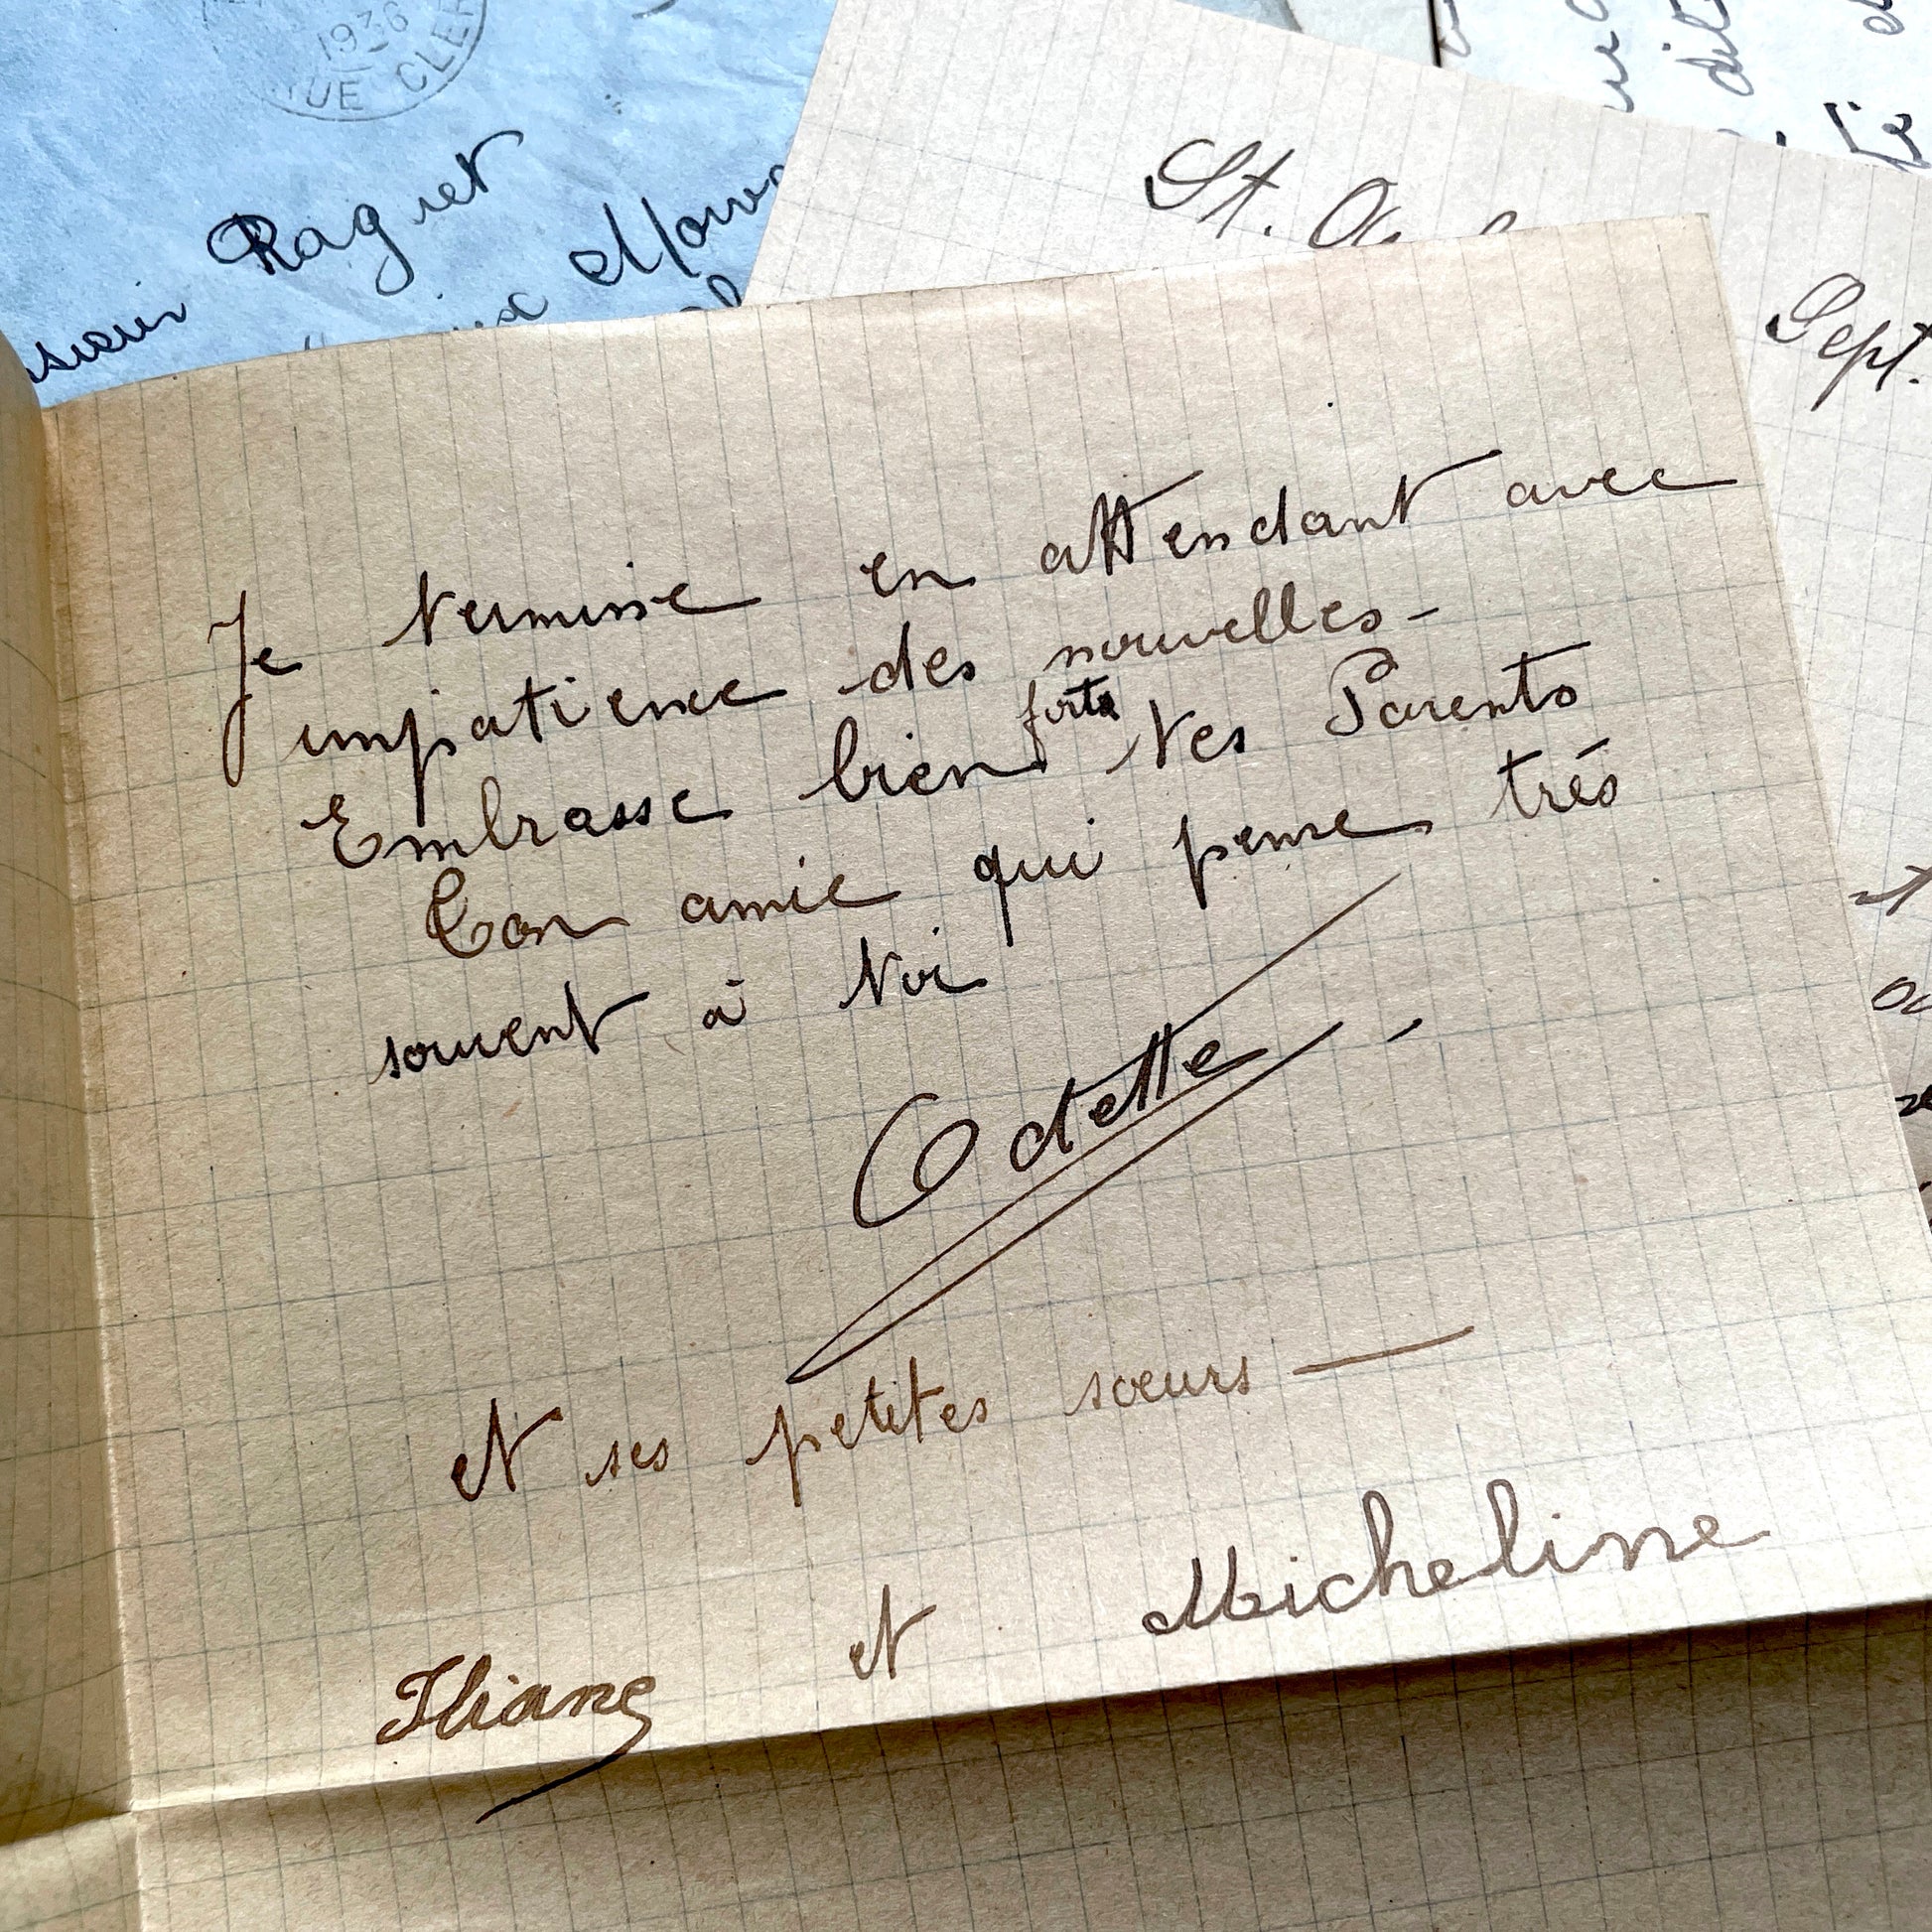 1936
Raguet
St.
Sept.
Je termine en attendant avec
impatience des nouvelles-
Embrasse bien forts tes Parents
Ton amie qui pense très
souvent à toi
Odette
et ses petites sœurs —
et Micheline